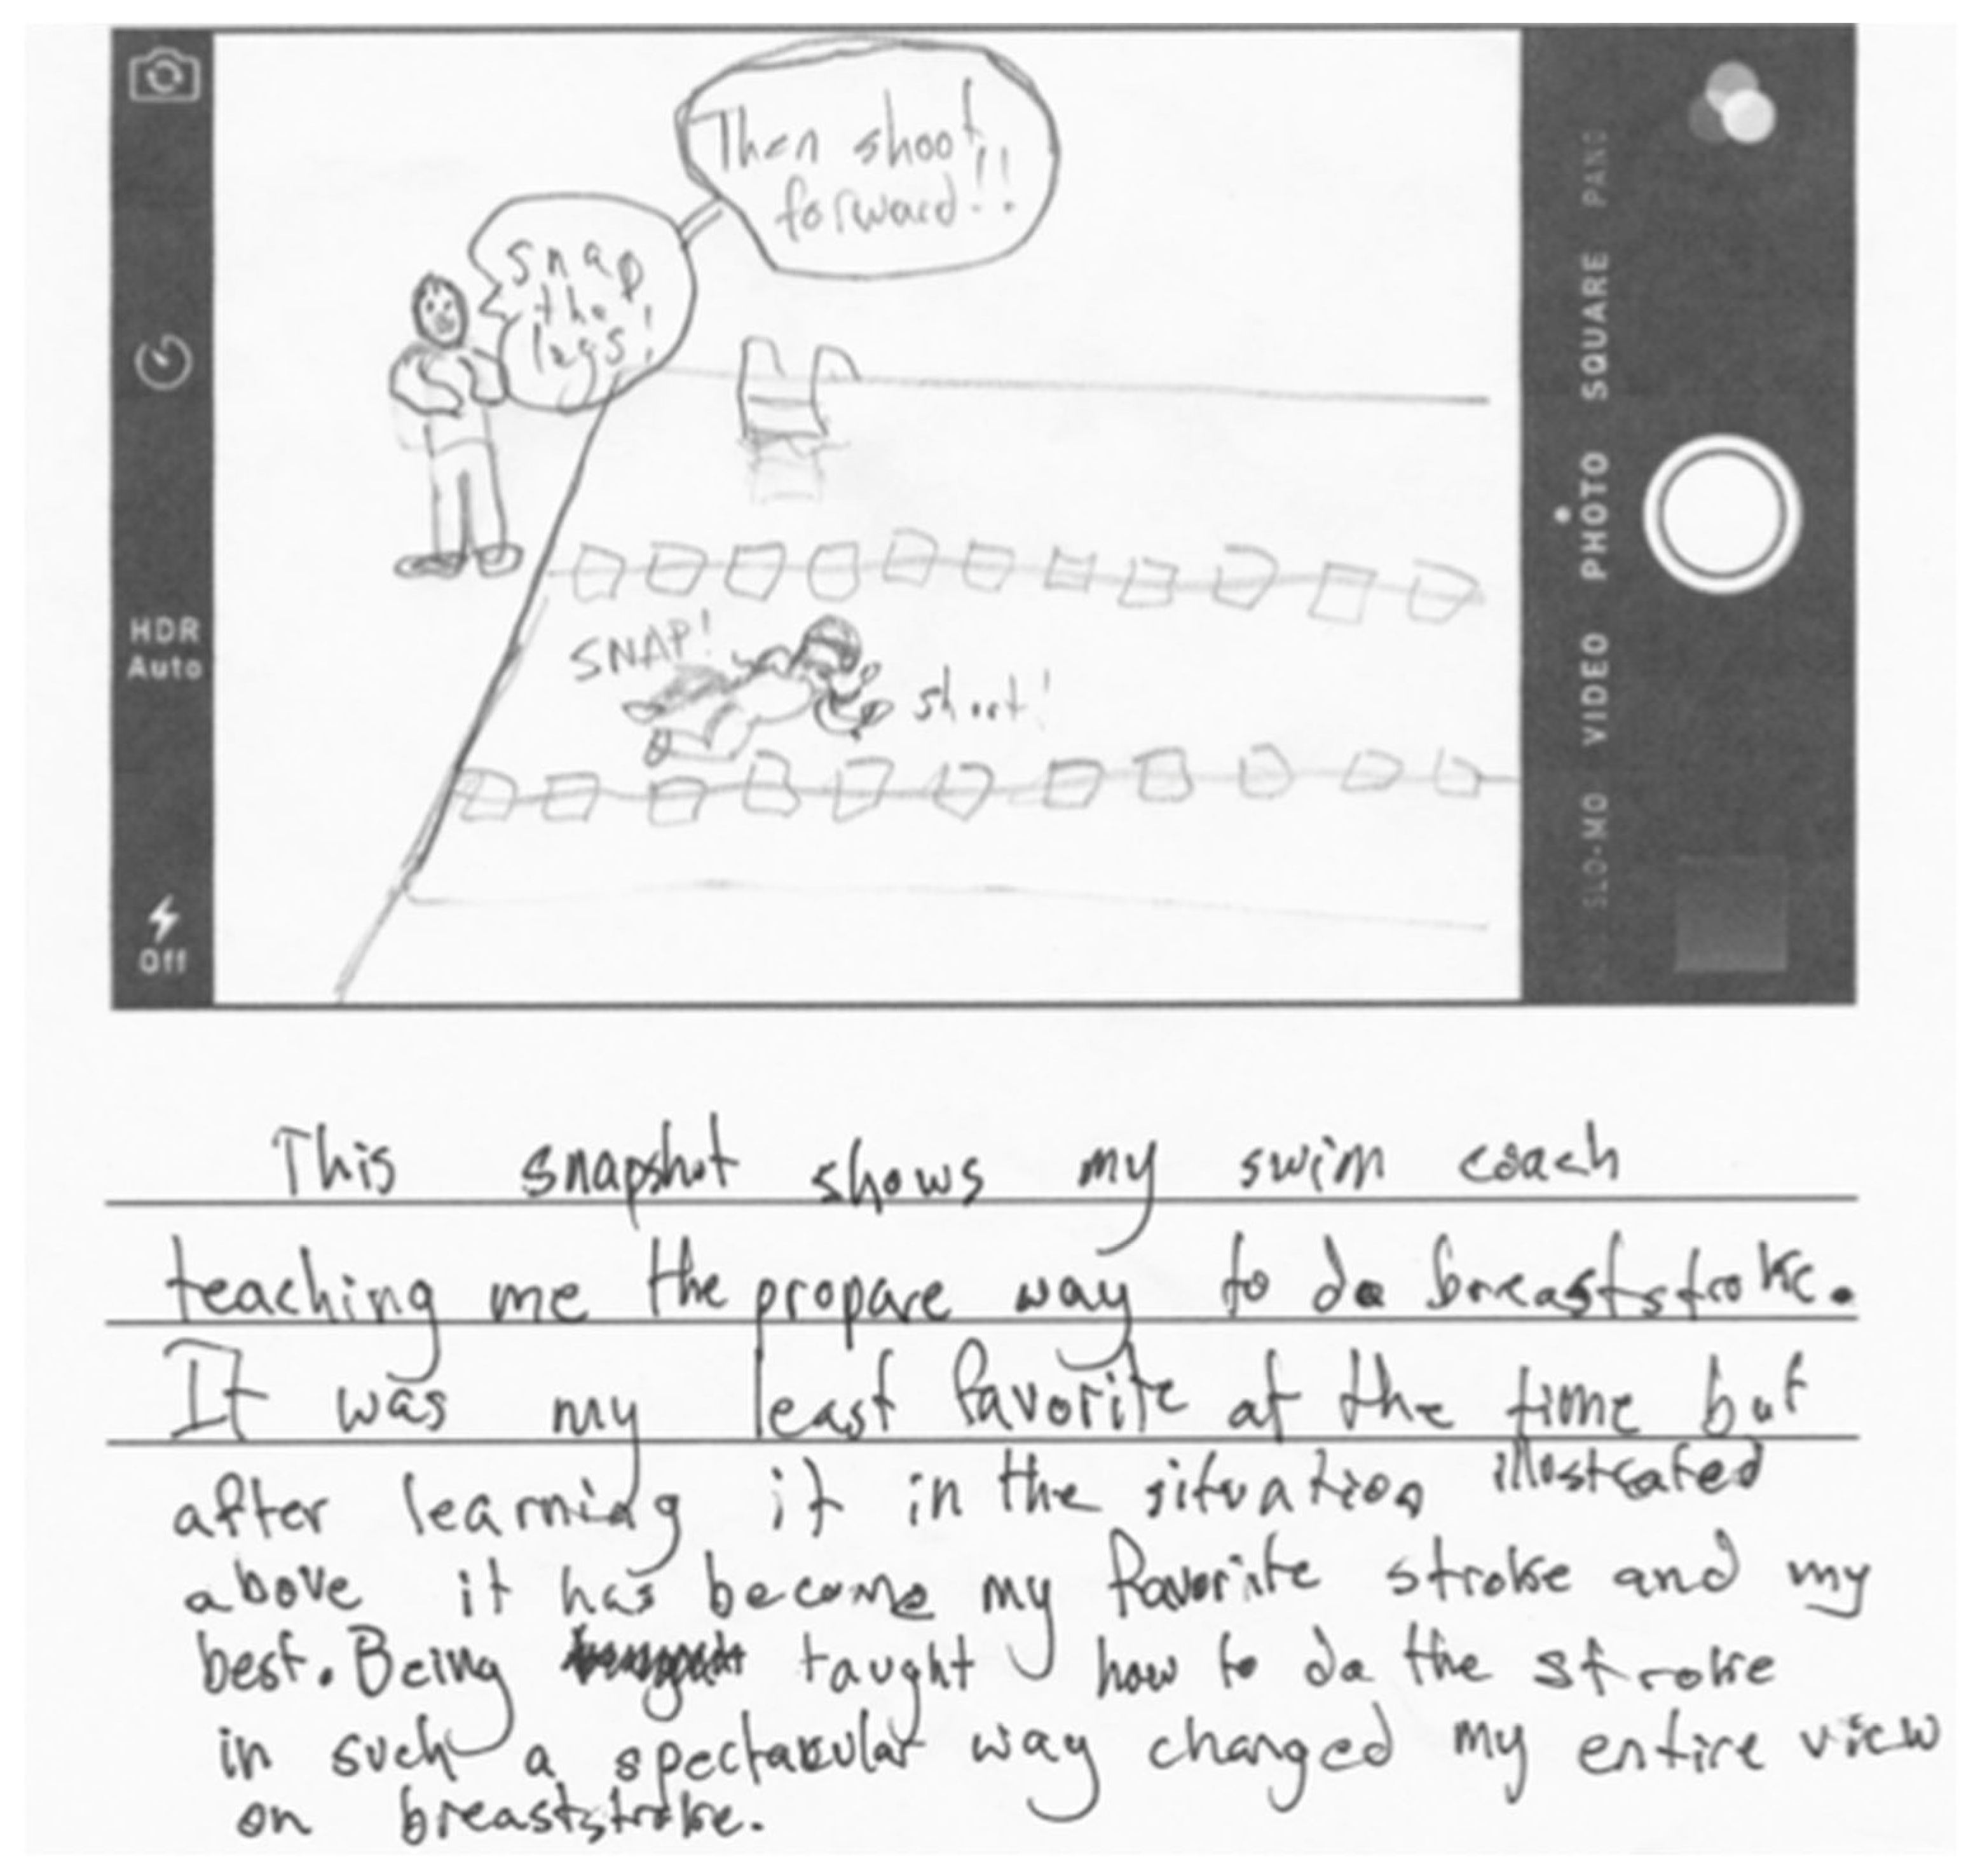 Then shoot
forward!!
snap
the
legs!
SNAP!
shoot!
HDR
Auto
Off
SLO-MO VIDEO PHOTO SQUARE PANO
This snapshot shows my swim coach
teaching me the propare way to do breaststroke.
It was my least favorite at the time but
after learning it in the situation illustrated
above it has become my favorite stroke and my
best. Being taught how to do the stroke
in such a spectakular way changed my entire view
on breaststroke.